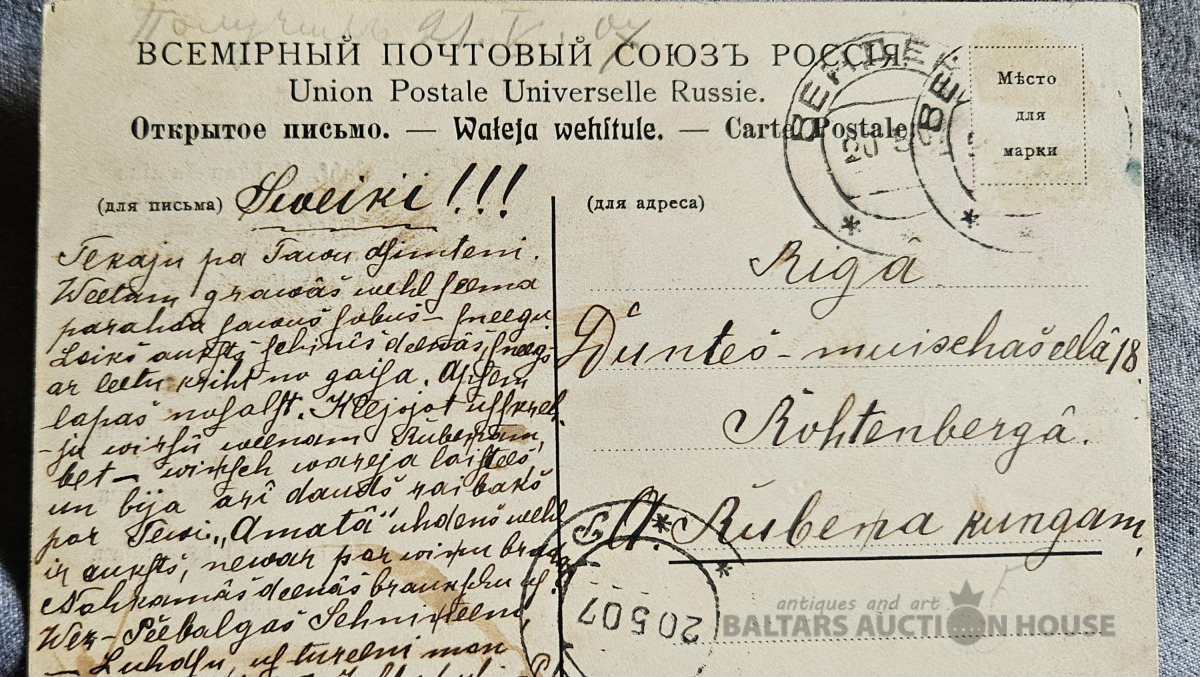 Получилъ 21. V. 07
ВСЕМІРНЫЙ ПОЧТОВЫЙ СОЮЗЪ РОССІЯ.
Union Postale Universelle Russie.
Открытое письмо. — Waļeja wehſtule. — Carte Postale.
ВЕНДЕН
ВЕ
20 5
Мѣсто
для
марки
(для письма) Sweiki!!!
Tekaju pa Tawu dſimteni.
Weetām grawâs wehl ſeema
parahda ſawus ſobus – ſneegu.
Laiks auksts, ſchinîs deenâs ſneegs
ar leetu kriht no gaiſa.
lapas noſalſt.
-ju wirſū weenam Rubenim,
bet –
un bija arî dauds raibaks
par Tewi. „Amatâ" uhdens wehl
ir auksts, newar par wiņu
Nahkamâs deenâs braukſchu uſ
Wez-Peebalgas
– Luhdſu, uſ tureni man
(для адреса)
Rîgâ
Duntes-muischas eelâ 18.
Rohtenbergâ.
A. Rubeņa kungam,
20 5 07
antiques and art
BALTARS AUCTION HOUSE